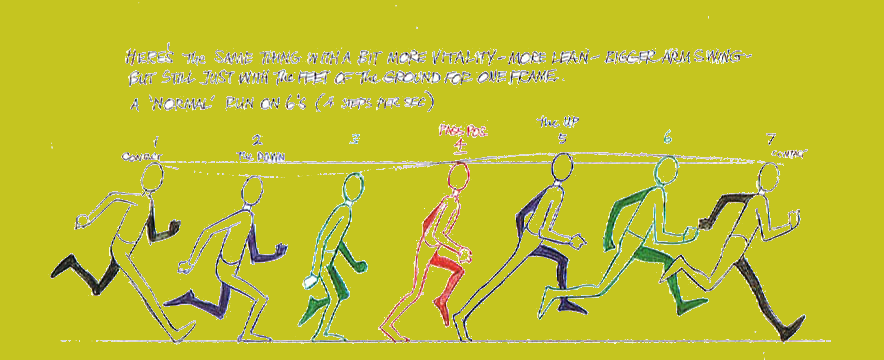 HERE'S THE SAME THING WITH A BIT MORE VITALITY - MORE LEAN - BIGGER ARM SWING -
BUT STILL JUST WITH THE FEET OFF THE GROUND FOR ONE FRAME.
A 'NORMAL' RUN ON 6's (4 STEPS PER SEC)
PASS POS
THE UP
1 2 3 4 5 6 7
CONTACT THE DOWN CONTACT